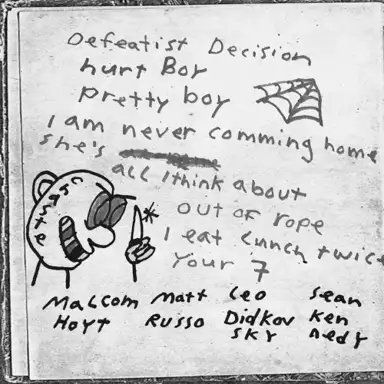 Defeatist Decision
hurt Boy
pretty boy
I am never comming home
she's
all I think about
out of rope
I eat lunch twice
Your 7
Malcom Hoyt
Matt Russo
Leo Didkovsky
Sean Kennedy